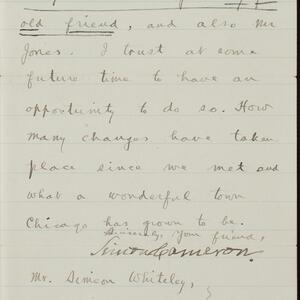 old friend, and also Mr
Jones. I trust at some
future time to have an
opportunity to do so. How
many changes have taken
place since we met and
what a wonderful town
Chicago has grown to be.
Sincerely, Your friend,
Simon Cameron.
Mr. Simeon Whiteley,